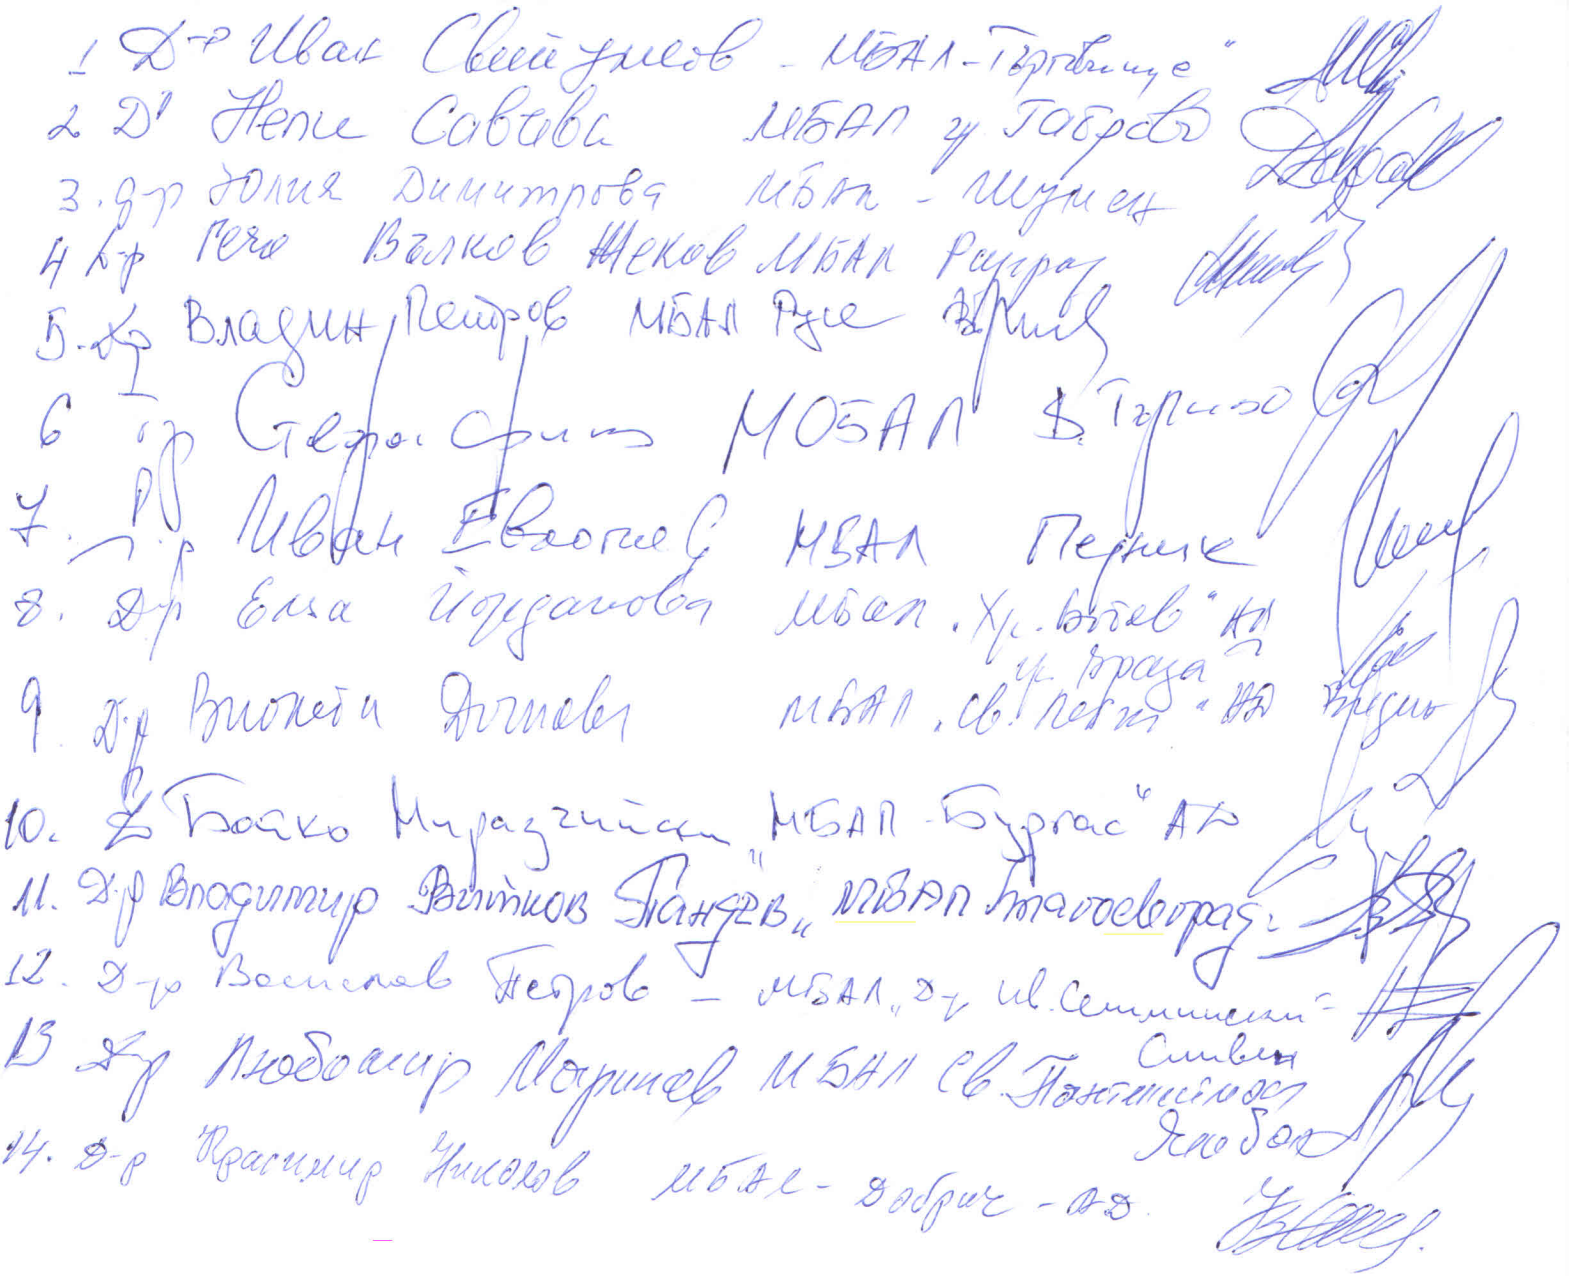 1 Д-р Иван - МБАЛ-Търговище"
2 Д-р Нели Савчева МБАЛ гр Габрово
3. д-р Юлия Димитрова МБАЛ - Шумен
4 Д-р Вълков Жеков МБАЛ Разград
5. Д-р Владин Петров МБАЛ Русе
6 д-р МОБАЛ В. Търново
7. Д-р Иван МБАЛ Перник
8. Д-р Йорданова МБАЛ „Хр. Ботев" АД
гр. Враца
9 Д-р Виолета МБАЛ „Св. Петка" АД Видин
10. Бойко „МБАЛ-Бургас" АД
11. Д-р Владимир Пандев „МБАЛ Благоевград"
12. Д-р Петров - МБАЛ „Д-р Ив. Селимински"-
Сливен
13 Д-р Любомир Маринов МБАЛ Св. Пантелеймон
Ямбол
14. Д-р Красимир Николов МБАЛ - Добрич - АД